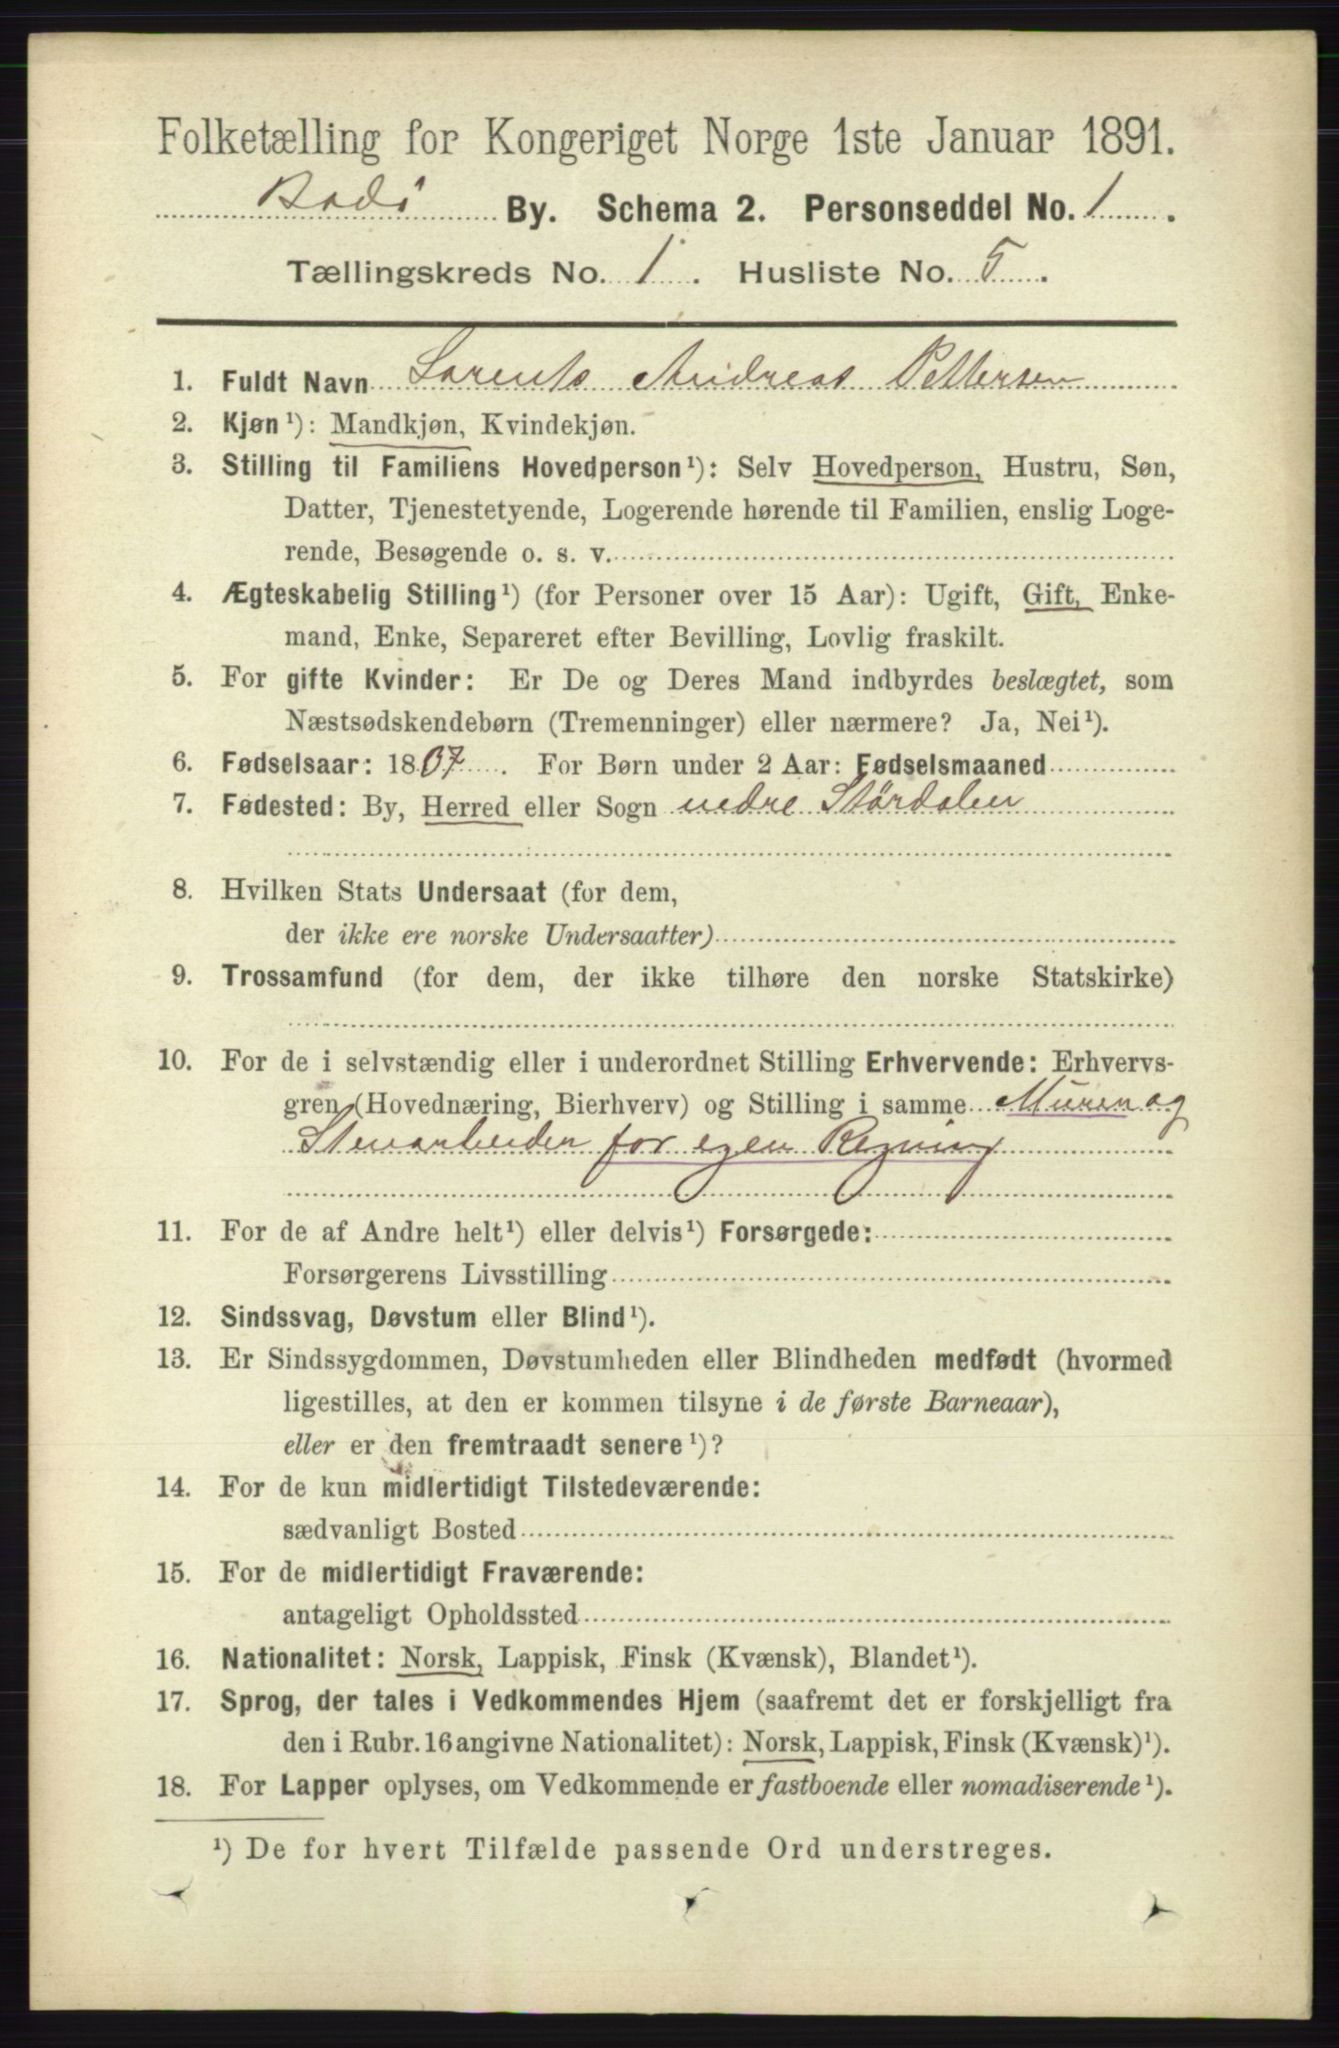 Folketælling for Kongeriget Norge 1ste Januar 1891.
Bodö By. Schema 2. Personseddel No. 1.
Tællingskreds No. 1. Husliste No. 5.
1. Fuldt Navn Lorents Andreas Pettersen
2. Kjøn¹): Mandkjøn, Kvindekjøn.
3. Stilling til Familiens Hovedperson¹): Selv Hovedperson, Hustru, Søn,
Datter, Tjenestetyende, Logerende hørende til Familien, enslig Loge-
rende, Besøgende o. s. v.
4. Ægteskabelig Stilling¹) (for Personer over 15 Aar): Ugift, Gift, Enke-
mand, Enke, Separeret efter Bevilling, Lovlig fraskilt.
5. For gifte Kvinder: Er De og Deres Mand indbyrdes beslægtet, som
Næstsødskendebørn (Tremenninger) eller nærmere? Ja, Nei¹).
6. Fødselsaar: 1837. For Børn under 2 Aar: Fødselsmaaned
7. Fødested: By, Herred eller Sogn nedre Stördalen
8. Hvilken Stats Undersaat (for dem,
der ikke ere norske Undersaatter)
9. Trossamfund (for dem, der ikke tilhøre den norske Statskirke)
10. For de i selvstændig eller i underordnet Stilling Erhvervende: Erhvervs-
gren (Hovednæring, Bierhverv) og Stilling i samme Murer og
Stenarbeider for egen Regning
11. For de af Andre helt¹) eller delvis¹) Forsørgede:
Forsørgerens Livsstilling
12. Sindssvag, Døvstum eller Blind¹).
13. Er Sindssygdommen, Døvstumheden eller Blindheden medfødt (hvormed
ligestilles, at den er kommen tilsyne i de første Barneaar),
eller er den fremtraadt senere¹)?
14. For de kun midlertidigt Tilstedeværende:
sædvanligt Bosted
15. For de midlertidigt Fraværende:
antageligt Opholdssted
16. Nationalitet: Norsk, Lappisk, Finsk (Kvænsk), Blandet¹).
17. Sprog, der tales i Vedkommendes Hjem (saafremt det er forskjelligt fra
den i Rubr. 16 angivne Nationalitet): Norsk, Lappisk, Finsk (Kvænsk)¹).
18. For Lapper oplyses, om Vedkommende er fastboende eller nomadiserende¹).
¹) De for hvert Tilfælde passende Ord understreges.